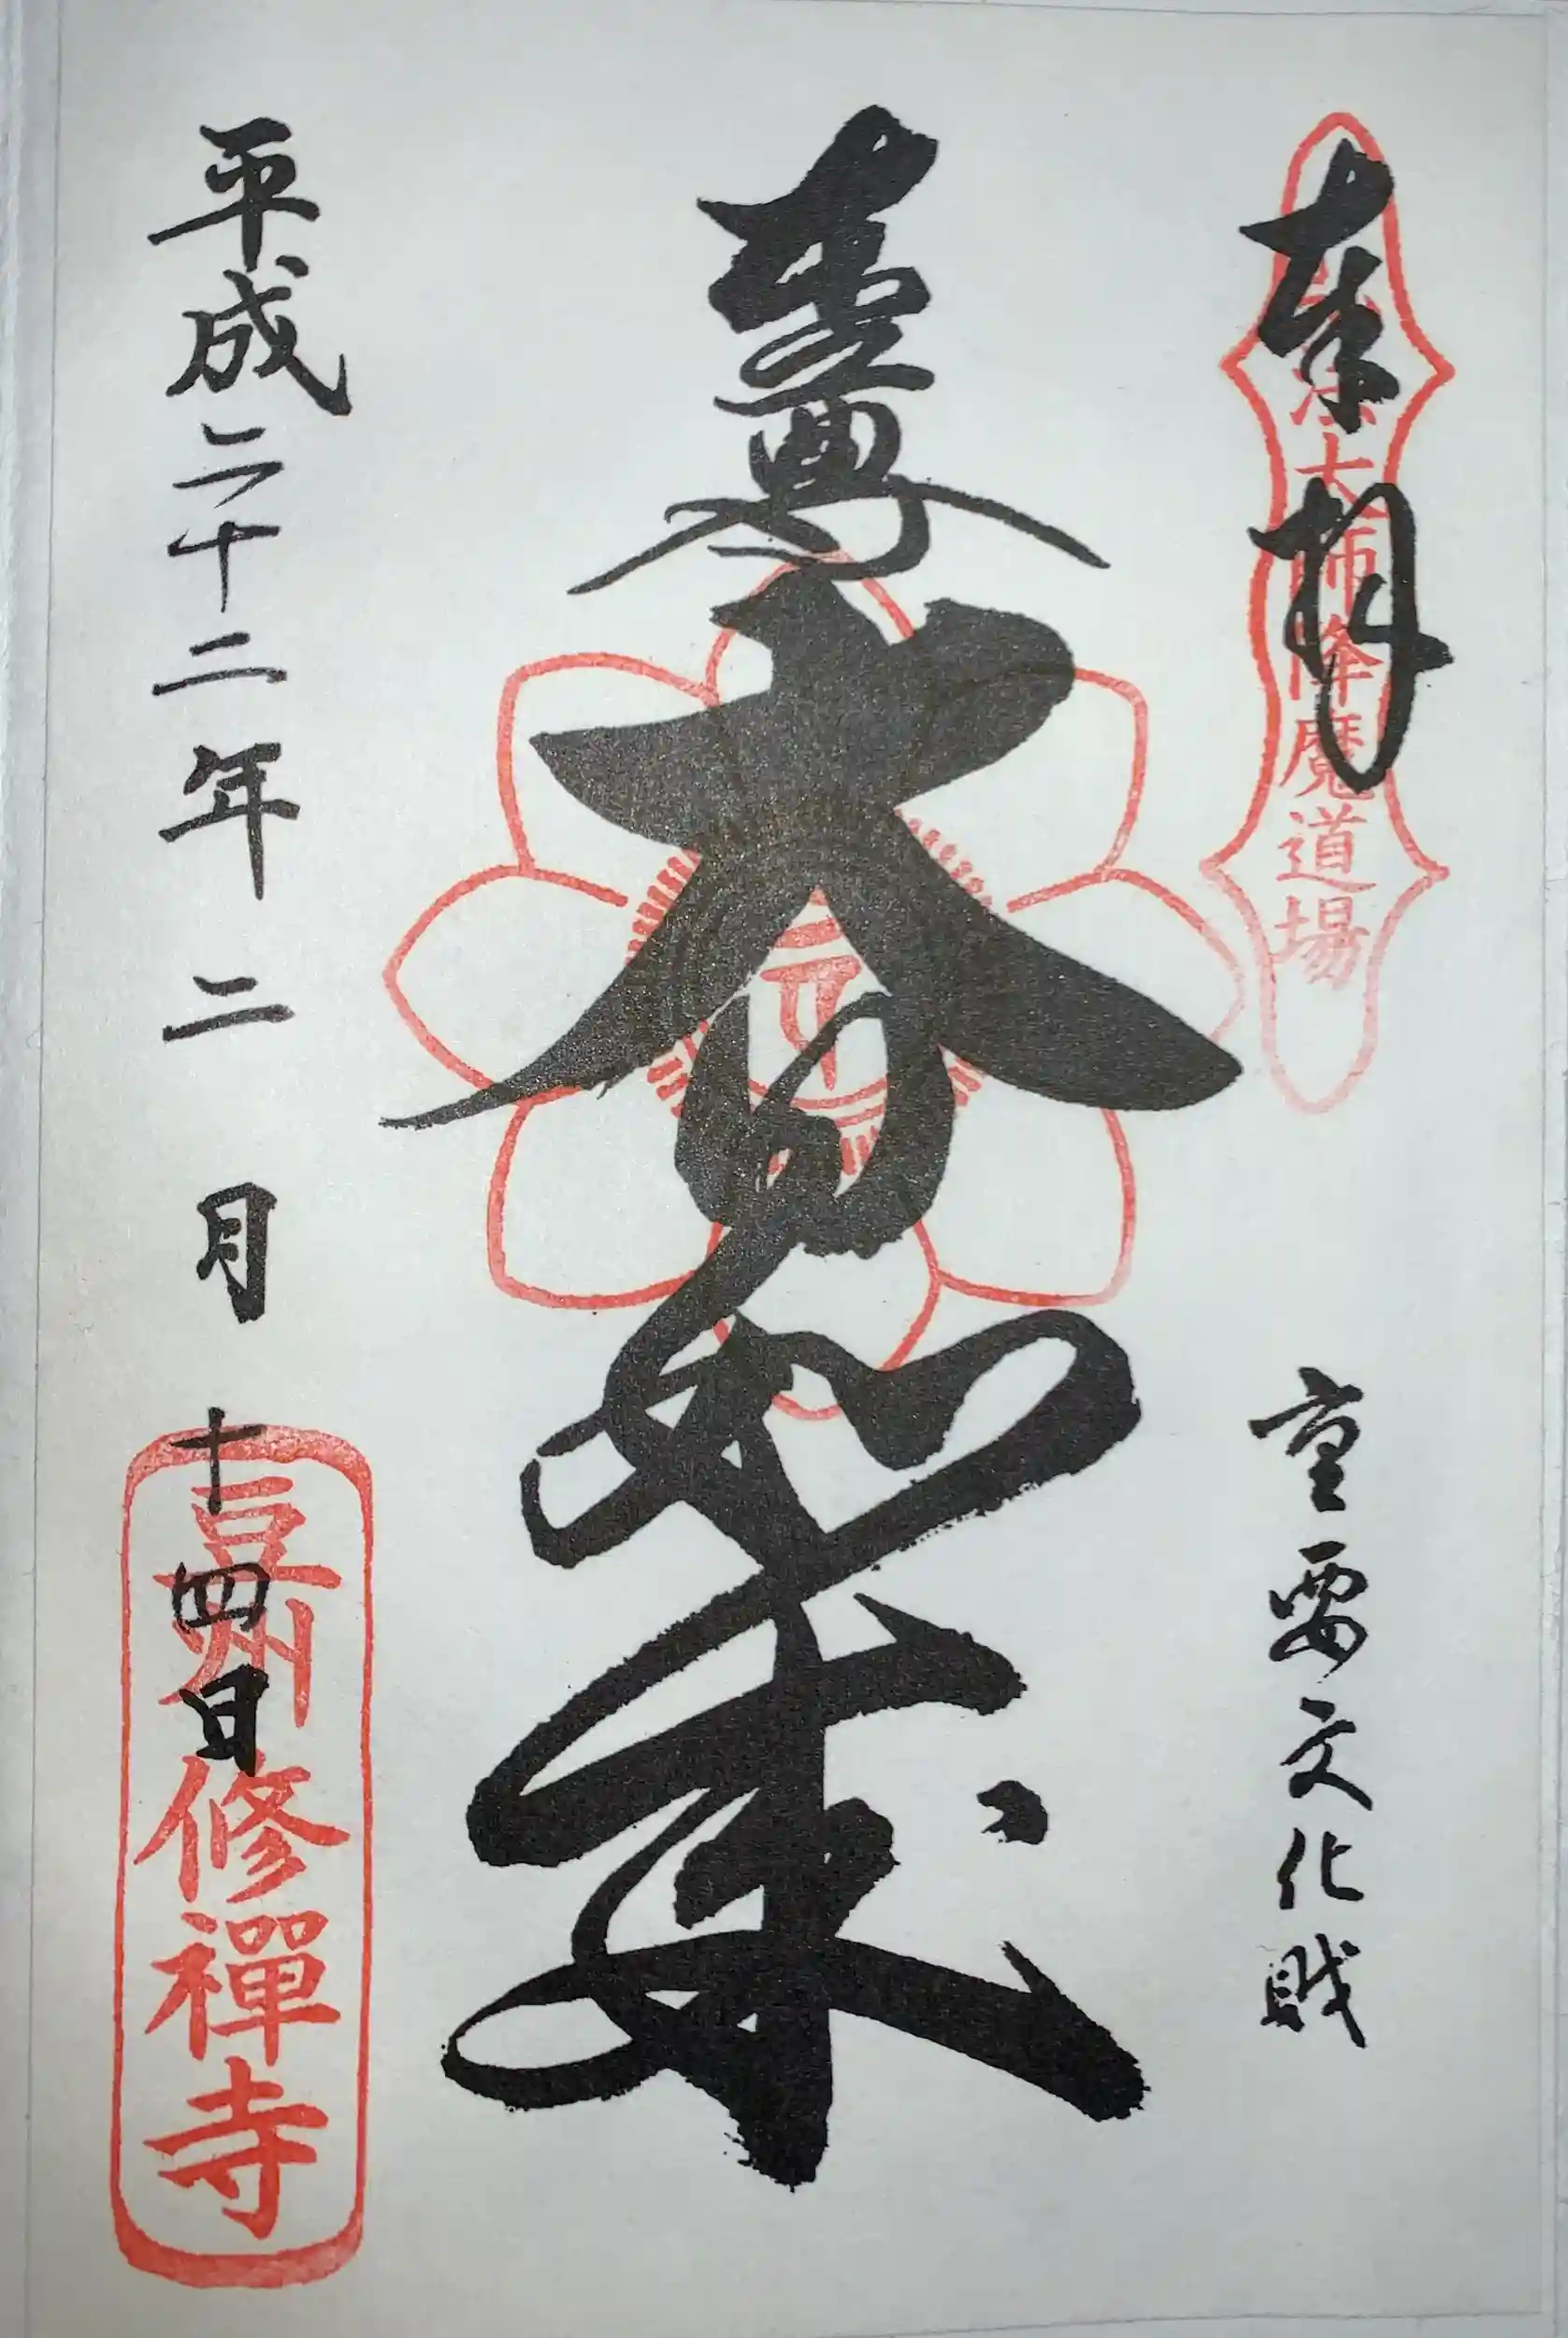 奉拝
弘法大師降魔道場
重要文化財
本尊大日如来
平成二十二年二月十四日
豆州修禪寺